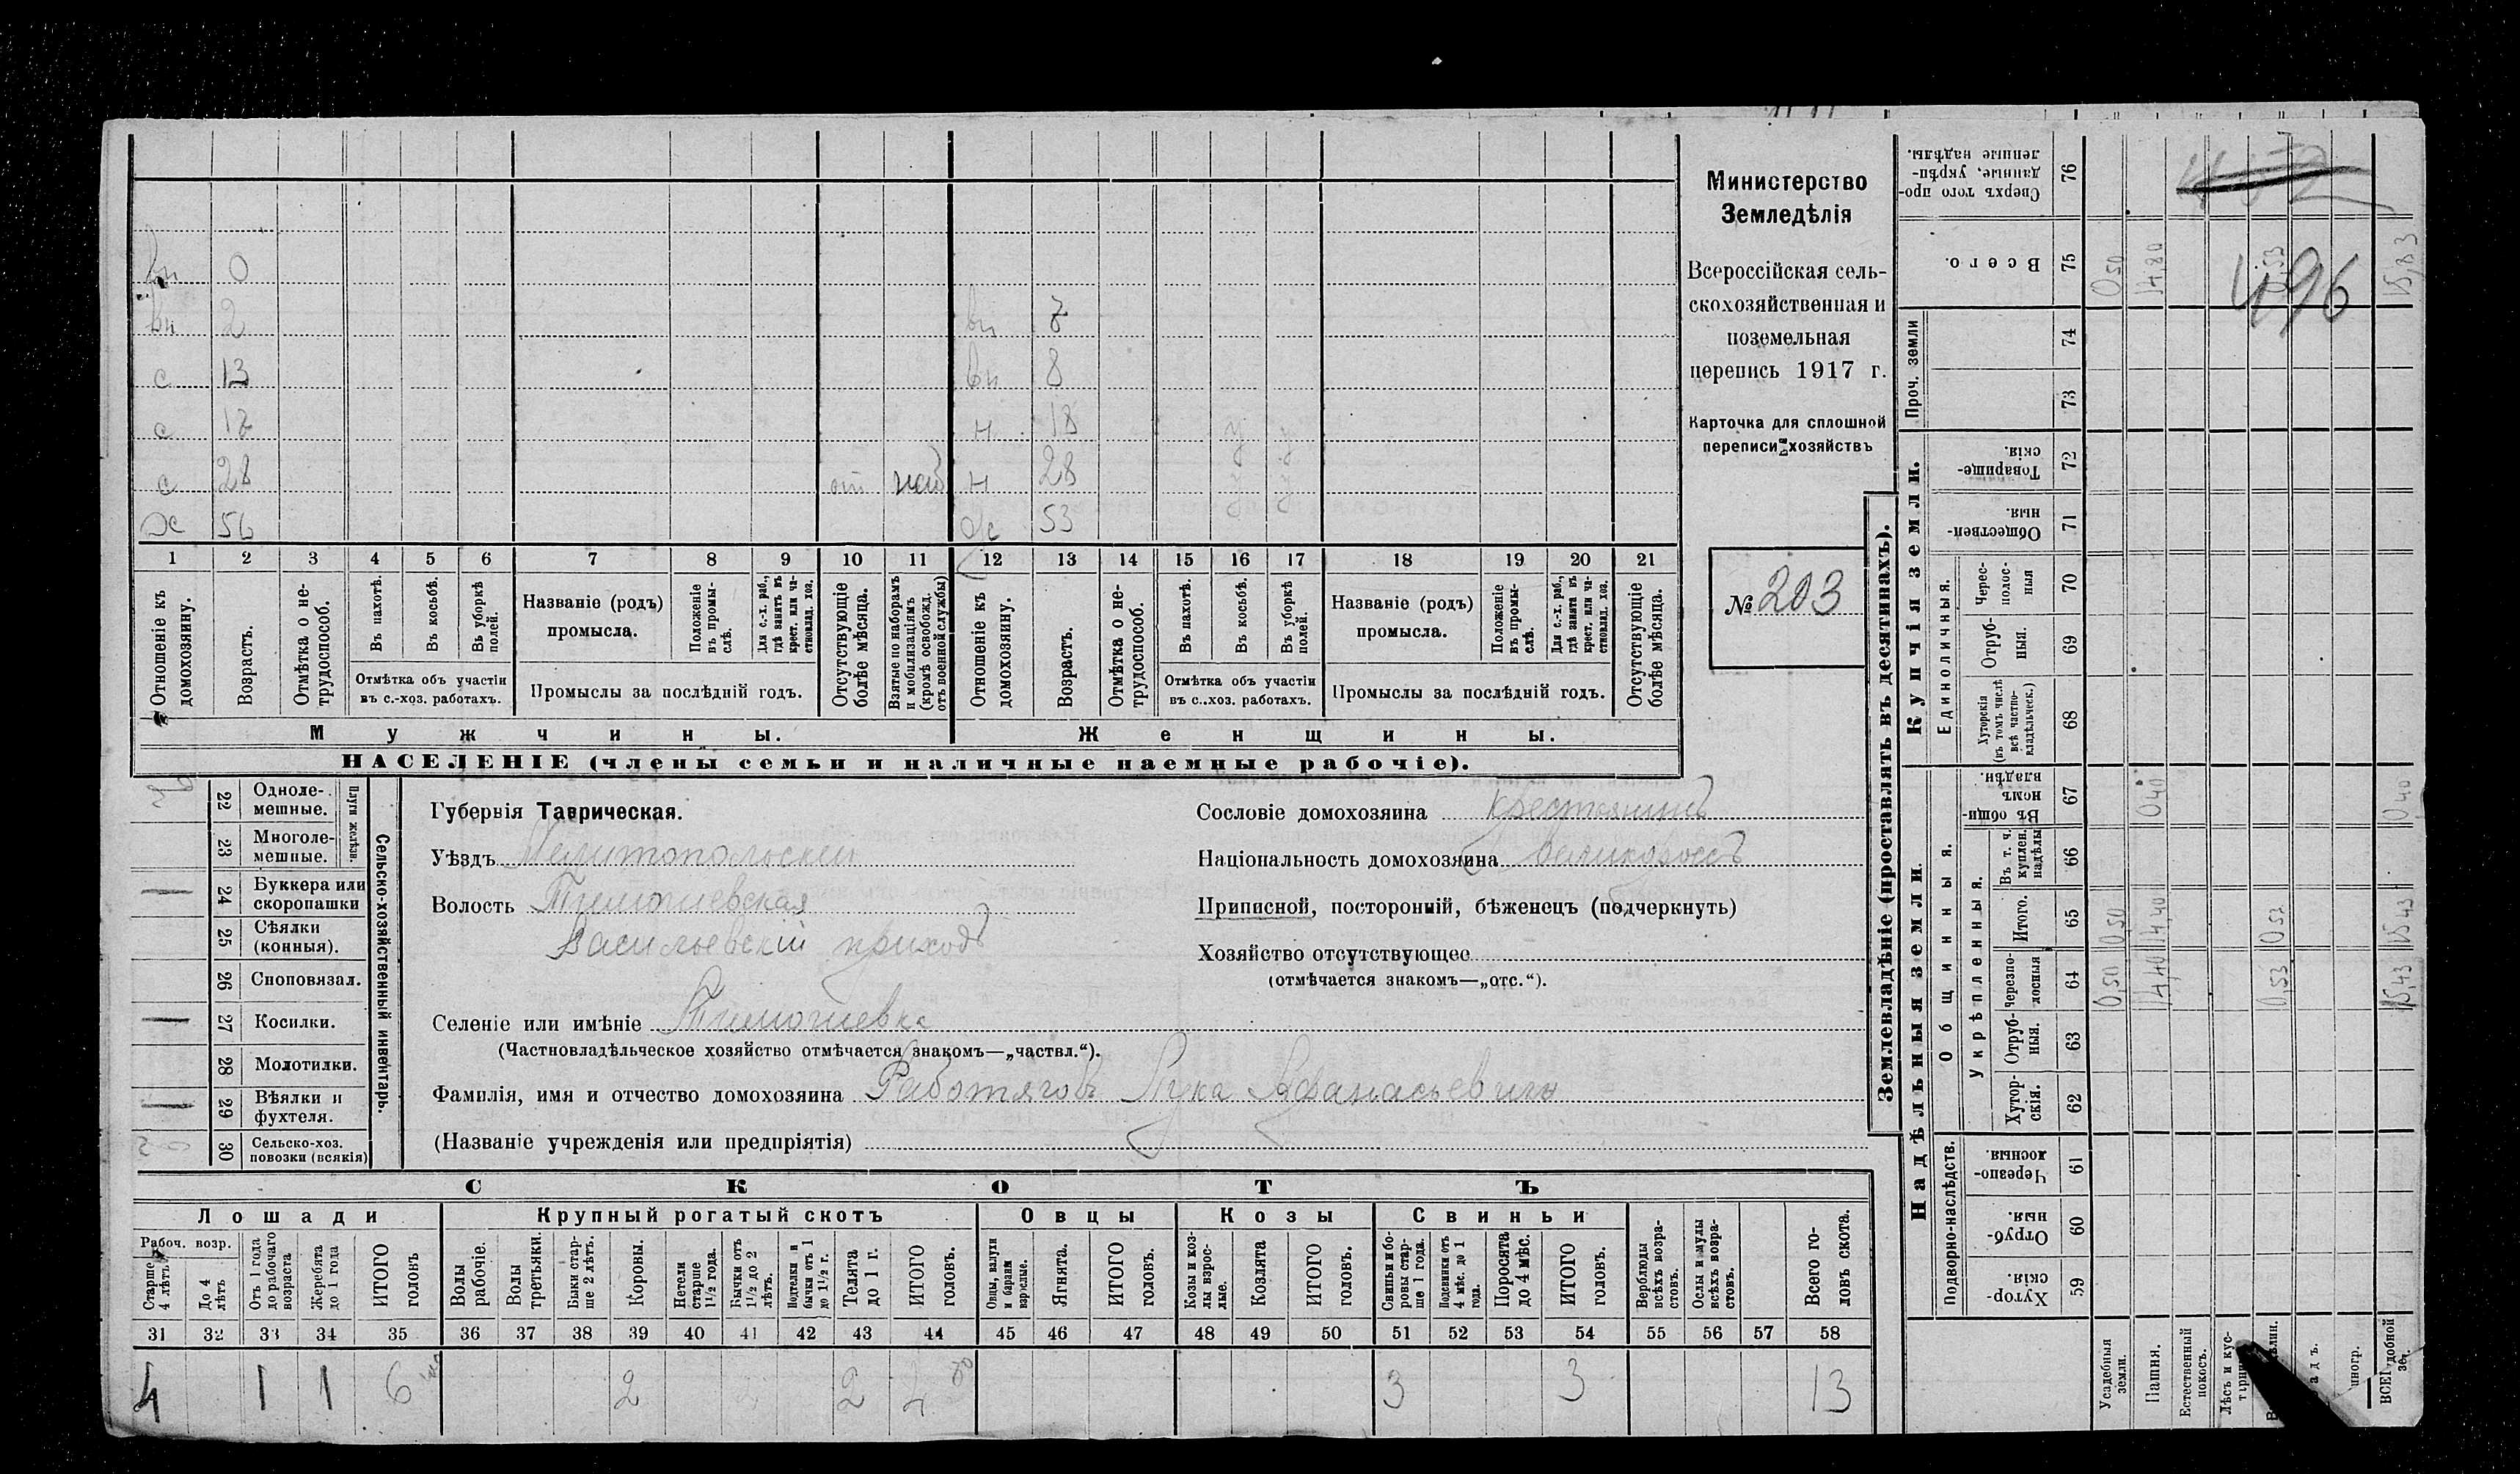 вн 0
вн 2 вн 7
с 13 вн 8
с 17 н 18 у у
с 28 от наб н 28 у у
Х 56 Ж 53
1 2 3 4 5 6 7 8 9 10 11 12 13 14 15 16 17 18 19 20 21
Отношеніе къ домохозяину.
Возрастъ.
Отмѣтка о не-
трудоспособ.
Въ пахотѣ.
Въ косьбѣ.
Въ уборкѣ полей.
Отмѣтка объ участіи
въ с.-хоз. работахъ.
Названіе (родъ)
промысла.
Положеніе въ промы-
слѣ.
Для с.-х. раб.,
гдѣ занятъ въ
крест. или ча-
стновлад. хоз.
Промыслы за послѣдній годъ.
Отсутствующіе
болѣе мѣсяца.
Взятые по наборамъ
и мобилизаціямъ
(кромѣ освобожд.
отъ военной службы)
Отношеніе къ
домохозяину.
Возрастъ.
Отмѣтка о не-
трудоспособ.
Въ пахотѣ.
Въ косьбѣ.
Въ уборкѣ полей.
Отмѣтка объ участіи
въ с..хоз. работахъ.
Названіе (родъ)
промысла.
Положеніе
въ промы-
слѣ.
Для с.-х. раб.,
гдѣ занята въ
крест. или ча-
стновлад. хоз.
Промыслы за послѣдній годъ.
Отсутствующіе
болѣе мѣсяца.
Мужчины. Женщины.
НАСЕЛЕНІЕ (члены семьи и наличные наемные рабочіе).
Министерство
Земледѣлія
Всероссійская сель-
скохозяйственная и
поземельная
перепись 1917 г.
Карточка для сплошной
переписи хозяйствъ
№ 203
22 Одноле-
мешные.
23 Многоле-
мешные.
Плуги желѣзн.
24 Буккера или
скоропашки
25 Сѣялки
(конныя).
26 Сноповязал.
27 Косилки.
28 Молотилки.
29 Вѣялки и
фухтеля.
30 Сельско-хоз.
повозки (всякія)
Сельско-хозяйственный инвентарь.
Губернія Таврическая.
Уѣздъ Мелитопольскій
Волость Тимошевская
Васильевскій приходъ
Селеніе или имѣніе Тимошевка
(Частновладѣльческое хозяйство отмѣчается знакомъ—„частвл.“).
Фамилія, имя и отчество домохозяина Работяговъ Лука Афанасьевичъ
(Названіе учрежденія или предпріятія)
Сословіе домохозяина крестьянинъ
Національность домохозяина великороссъ
Приписной, посторонній, бѣженецъ (подчеркнуть)
Хозяйство отсутствующее
(отмѣчается знакомъ—„отс.“).
СКОТЪ
Лошади Крупный рогатый скотъ Овцы Козы Свиньи
Рабоч. возр.
Старше
4 лѣтъ
До 4
лѣтъ
Отъ 1 года
до рабочаго
возраста
Жеребята
до 1 года
ИТОГО
головъ
Волы
рабочіе.
Волы
третьяки.
Быки стар-
ше 2 лѣтъ.
Коровы.
Нетели
старше
1½ года.
Бычки отъ
1½ до 2
лѣтъ.
Подтелки и
бычки отъ 1
до 1½ г.
Телята
до 1 г.
ИТОГО
головъ.
Овцы, валухи
и бараны
взрослые.
Ягнята.
ИТОГО
головъ.
Козы и коз-
лы взрос-
лые.
Козлята
ИТОГО
головъ.
Свиньи и бо-
ровы стар-
ше 1 года.
Подсвинки отъ
4 мѣс. до 1
года.
Поросята
до 4 мѣс.
ИТОГО
головъ.
Верблюды
всѣхъ возра-
стовъ.
Ослы и мулы
всѣхъ возра-
стовъ.
Всего го-
ловъ скота.
31 32 33 34 35 36 37 38 39 40 41 42 43 44 45 46 47 48 49 50 51 52 53 54 55 56 57 58
4 1 1 6 2 2 4 3 3 13
Землевладѣніе (проставлять въ десятинахъ).
Надѣльныя земли. Купчія земли.
Проч. земли
Подворно-наслѣдств.
Общинныя.
Укрѣпленныя.
Единоличныя.
76 Сверхъ того про-
данные, укрѣп-
ленные надѣлы.
75 Всего. 0,50 14,80 0,53 15,83
496
74
73
72 Товарище-
скія.
71 Обществен-
ныя.
70 Черес-
полос-
ныя
69 Отруб-
ныя.
68 Хуторскія
(въ томъ числѣ
всѣ частно-
владѣльческ.)
67 Въ общин-
номъ
владѣн. 0,40 0,40
66 Въ т. ч.
куплен.
надѣлы
65 Итого. 0,50 14,40 0,53 15,43
64 Черезпо-
лосныя 0,50 14,40 0,53 15,43
63 Отруб-
ныя.
62 Хутор-
скія.
61 Черезпо-
лосныя.
60 Отруб-
ныя.
59 Хутор-
скія.
Усадебныя
земли.
Пашня.
Естественный
покосъ.
Лѣсъ и кус-